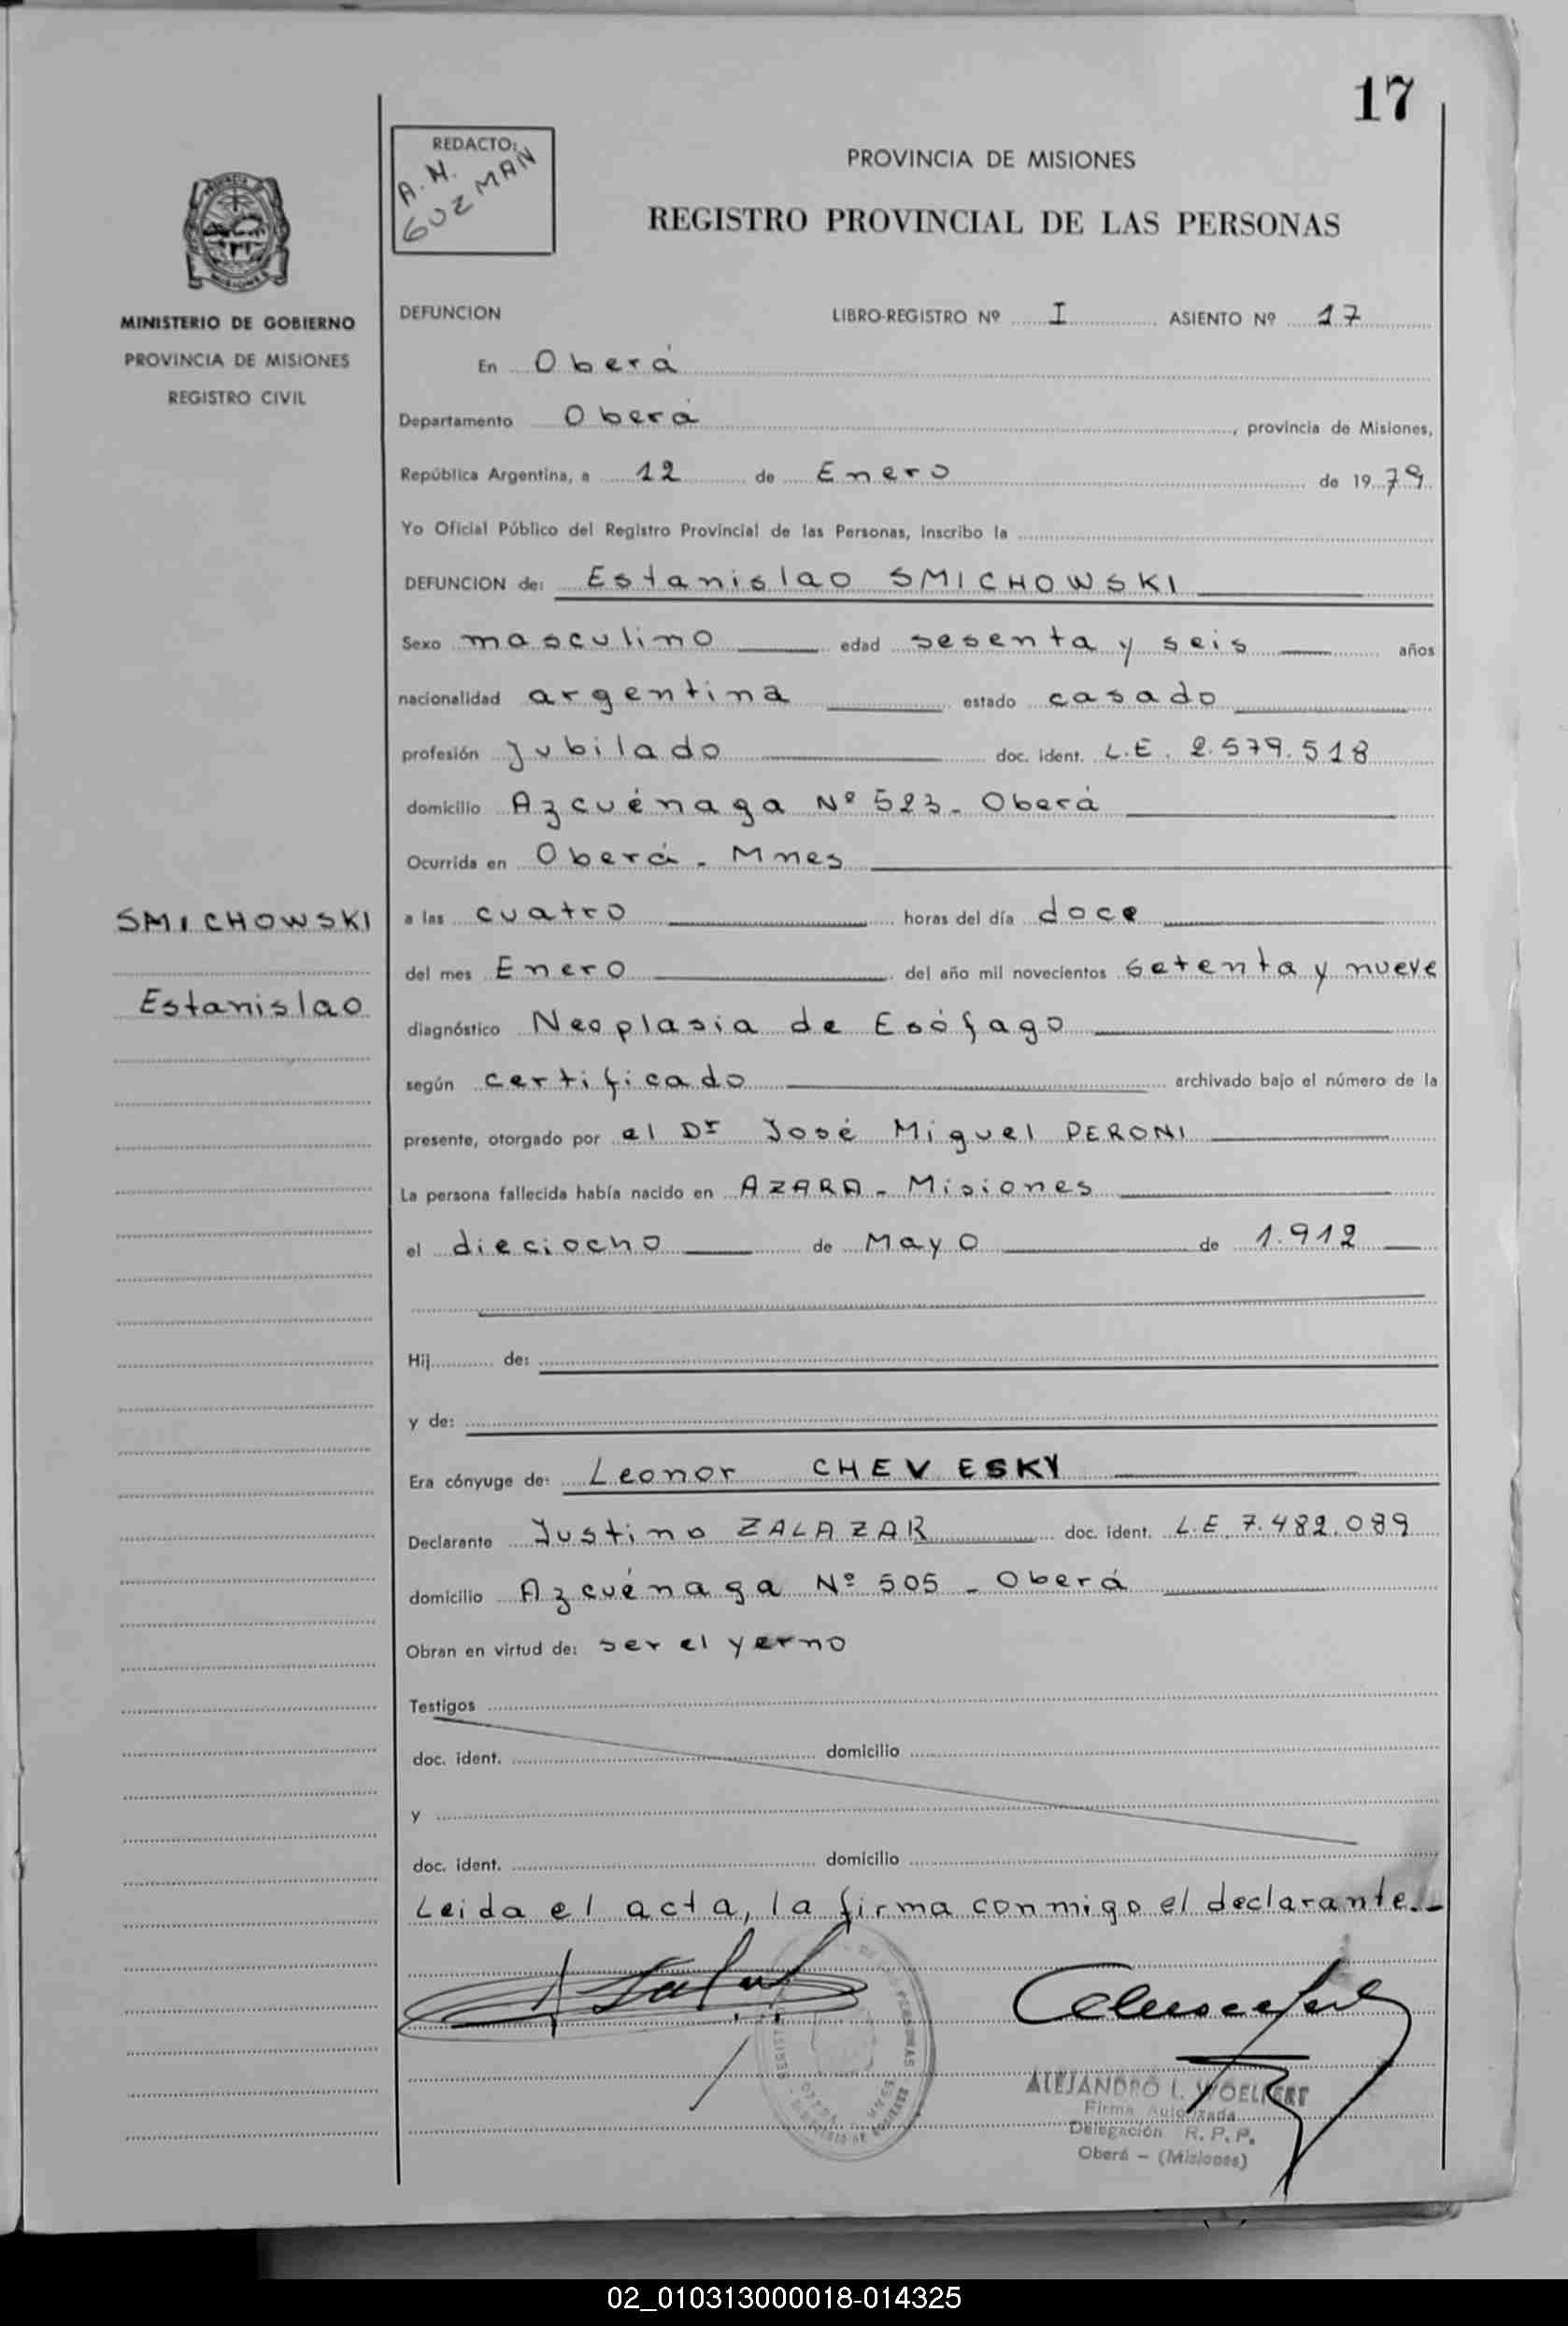 17
REDACTO:
A. H.
GUZMAN
PROVINCIA DE MISIONES
REGISTRO PROVINCIAL DE LAS PERSONAS
MINISTERIO DE GOBIERNO
PROVINCIA DE MISIONES
REGISTRO CIVIL
DEFUNCION LIBRO-REGISTRO Nº I ASIENTO Nº 17
En Oberá
Departamento Oberá, provincia de Misiones,
República Argentina, a 12 de Enero de 1979
Yo Oficial Público del Registro Provincial de las Personas, inscribo la
DEFUNCION de: Estanislao SMICHOWSKI
Sexo masculino edad sesenta y seis años
nacionalidad argentina estado casado
profesión jubilado doc. ident. L.E. 2.579.518
domicilio Azcuénaga Nº 523 - Oberá
Ocurrida en Oberá - Mnes
SMICHOWSKI
Estanislao
a las cuatro horas del día doce
del mes Enero del año mil novecientos setenta y nueve
diagnóstico Neoplasia de Esófago
según certificado archivado bajo el número de la
presente, otorgado por el Dr José Miguel PERONI
La persona fallecida había nacido en AZARA - Misiones
el dieciocho de Mayo de 1.912
Hij de:
y de:
Era cónyuge de: Leonor CHEVESKY
Declarante Justino ZALAZAR doc. ident. L.E. 7.482.089
domicilio Azcuénaga Nº 505 - Oberá
Obran en virtud de: ser el yerno
Testigos
doc. ident. domicilio
y
doc. ident. domicilio
Leida el acta, la firma conmigo el declarante.-
ALEJANDRO L. WOELFERT
Firma Autorizada
Delegación R. P. P.
Oberá - (Misiones)
02_010313000018-014325